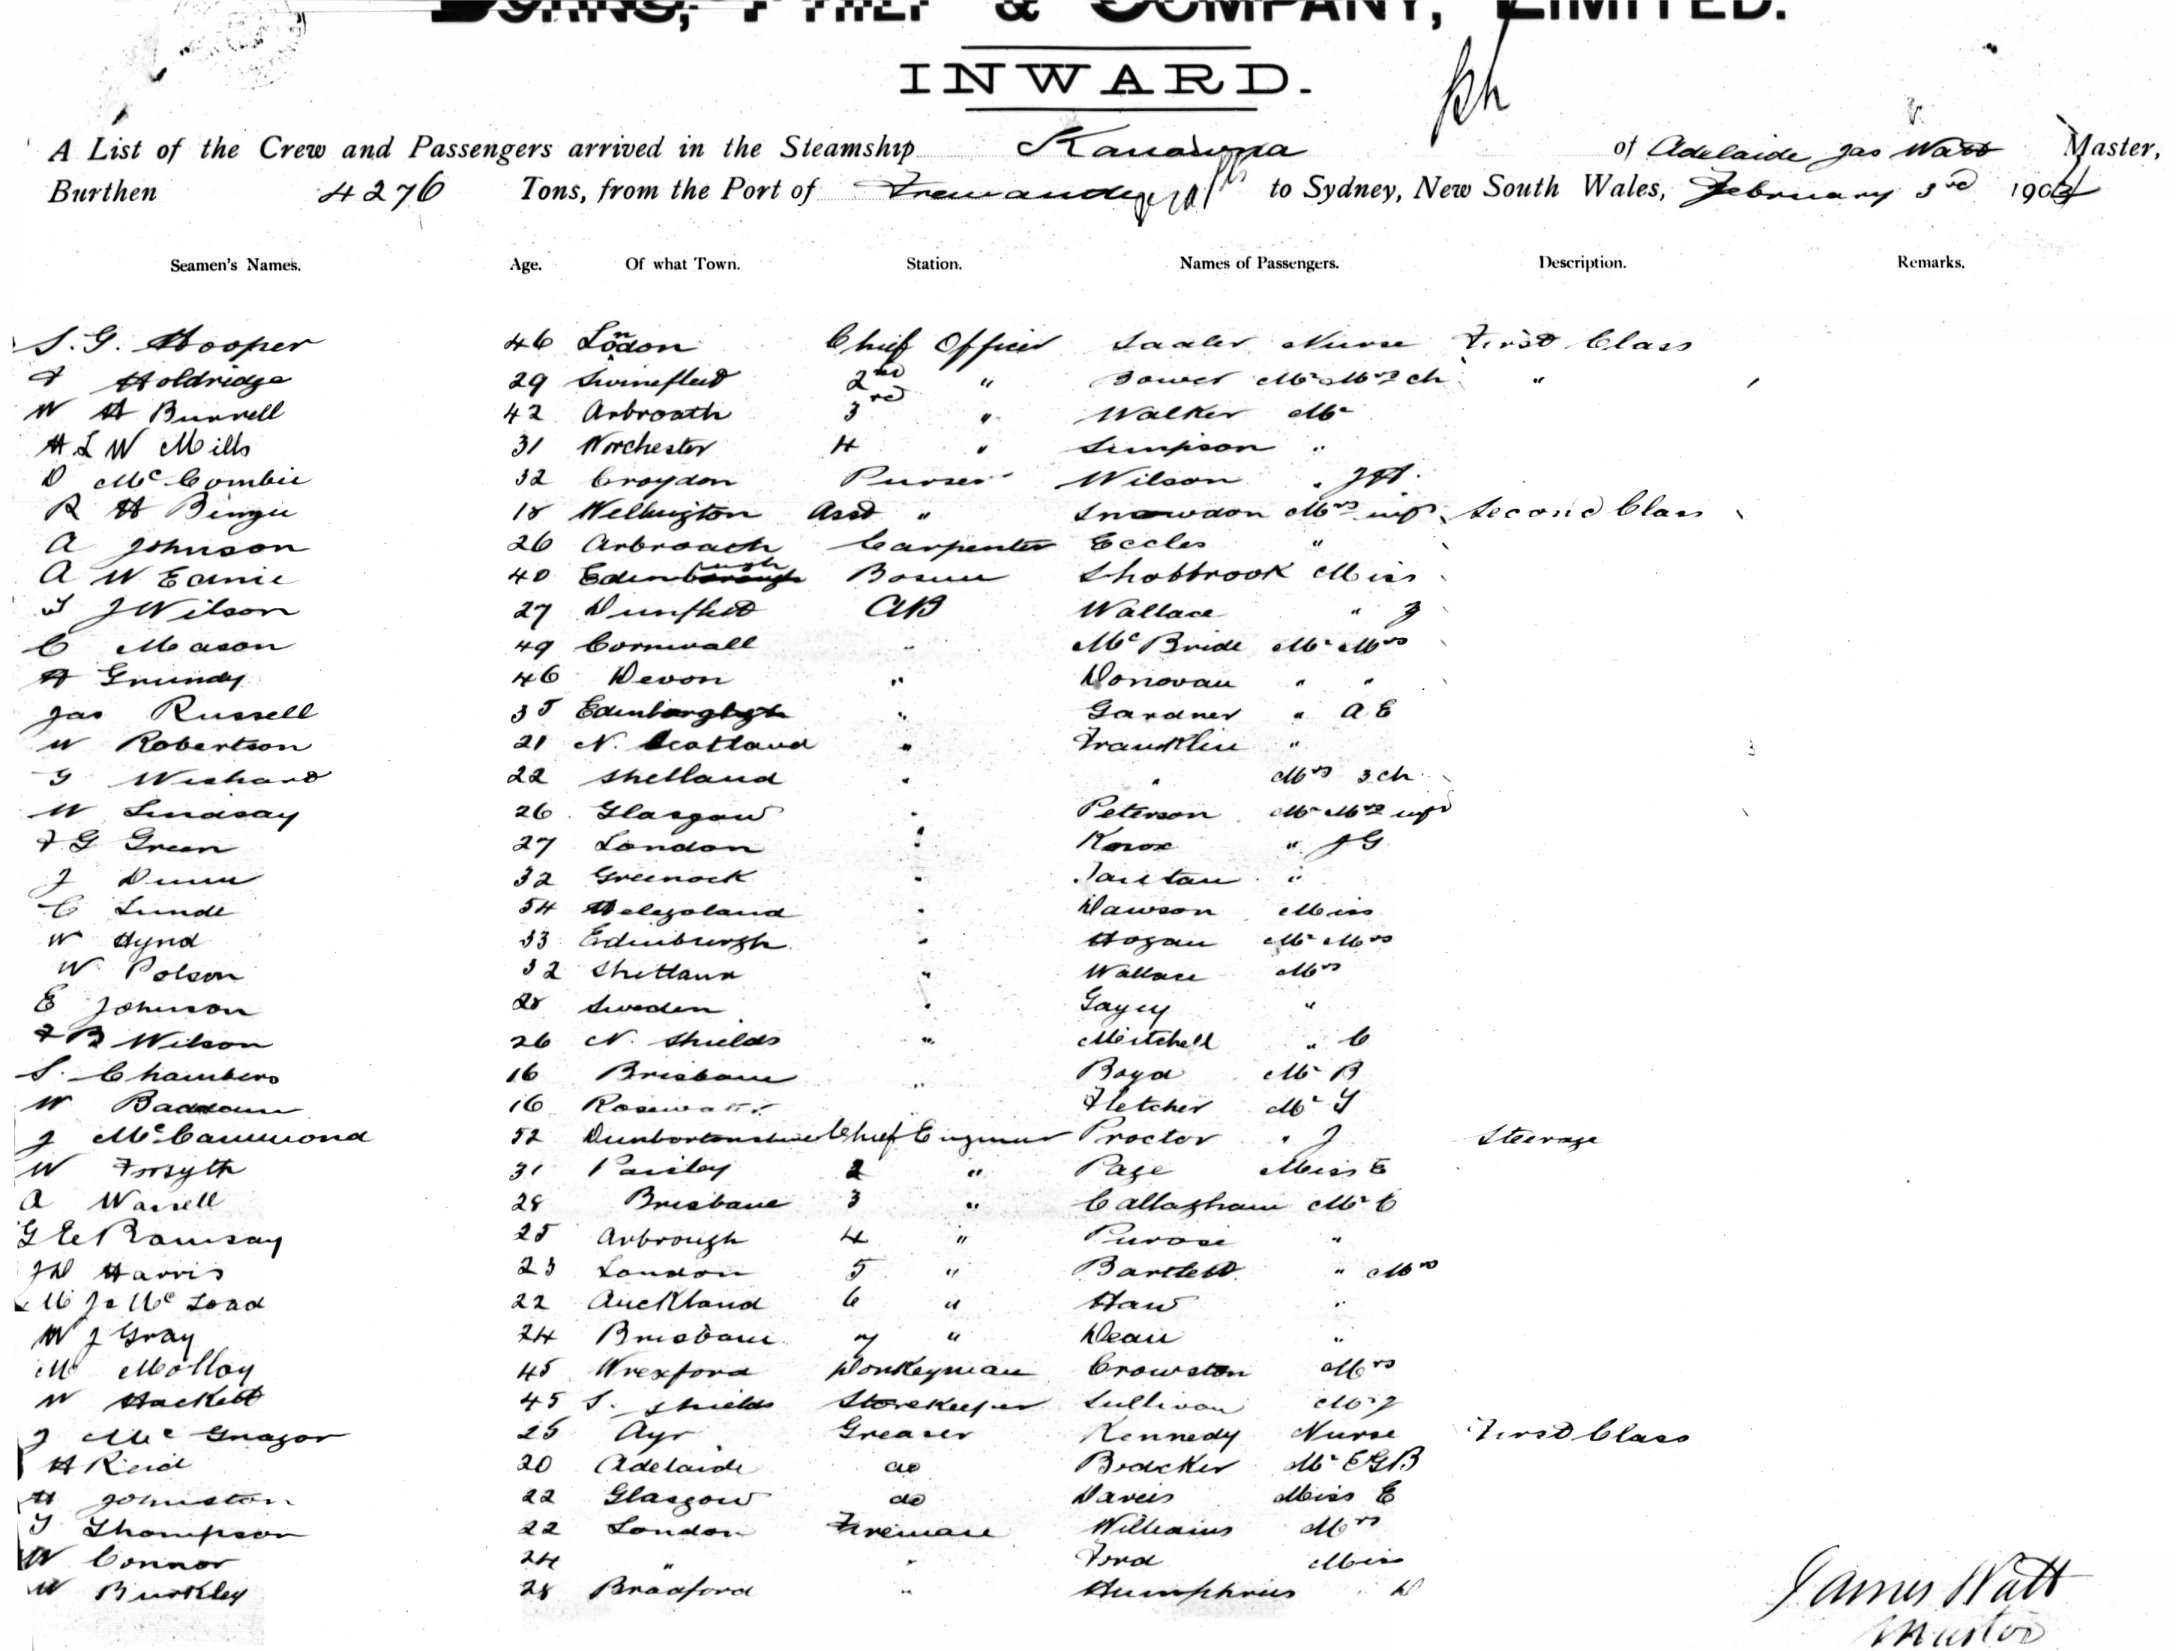 BURNS, PHILP & COMPANY, LIMITED.
INWARD.
A List of the Crew and Passengers arrived in the Steamship Kanowna of Adelaide Jas Watt Master,
Burthen 4276 Tons, from the Port of Fremantle to Sydney, New South Wales, February 3rd 1904
Seamen's Names. Age. Of what Town. Station. Names of Passengers. Description. Remarks.
S. G. Hooper 46 London Chief Officer Sadler Nurse First Class
F Holdridge 29 Swinefleet 2nd " Bower Mr Mrs 2 ch "
W H Burrell 42 Arbroath 3rd " Walker Mr
H L W Mills 31 Worchester 4 " Simpson "
D McCombie 32 Croydon Purser Wilson "
R H Bingie 18 Wellington Asst " Snowdon Mrs inft Second Class
A Johnson 26 Arbroath Carpenter Eccles "
A W Eadnie 40 Edinburgh Bosun Shobbrook Miss
T J Wilson 27 Dunfleet AB Wallace " J
C Meason 49 Cornwall " McBride Mr Mrs
H Grundy 46 Devon " Donovan " "
Jas Russell 35 Edinburgh " Gardner " A E
W Robertson 21 N. Scotland " Franklin "
G Wishard 22 Shetland " " Mrs 3 ch
W Lindsay 26 Glasgow " Peterson Mr Mrs inft
F G Green 27 London " Knox " J G
J Dunn 32 Greenock " "
C Lunde 54 Helegoland " Dawson Miss
W Hynd 33 Edinburgh " Hogan Mr Mrs
W Polson 32 Shetland " Wallace Mrs
E Johnson 28 Sweden " Gayey "
F B Wilson 26 N. Shields " Mitchell " C
S. Chambers 16 Brisbane " Boyd Mr B
W Baddams 16 Fletcher Mr T
J McCammond 52 Dunbartonshire Chief Engineer Proctor " J Steerage
W Forsyth 31 Paisley 2 " Page Miss E
A Wassell 28 Brisbane 3 " Callagham Mr C
G E Ramsay 25 Arbrough 4 " Purose "
J D Harris 23 London 5 " Bartlett " Mrs
McLoad 22 Auckland 6 " Haw "
W J Gray 24 Brisbane 7 " Dean "
M Molloy 45 Wrexford Donkeyman Crowston Mrs
W Hackett 45 S. Shields Storekeeper Sullivan Mr J
J McGragor 25 Ayr Greaser Kennedy Nurse First Class
H Reid 20 Adelaide do Boacker Mr E G B
H Johnston 22 Glasgow do Davies Miss E
T Thompson 22 London Fireman Williams Mrs
W Connor 24 " " Ford Miss
W Burkley 28 Bradford " Humphries " W
James Watt
Master